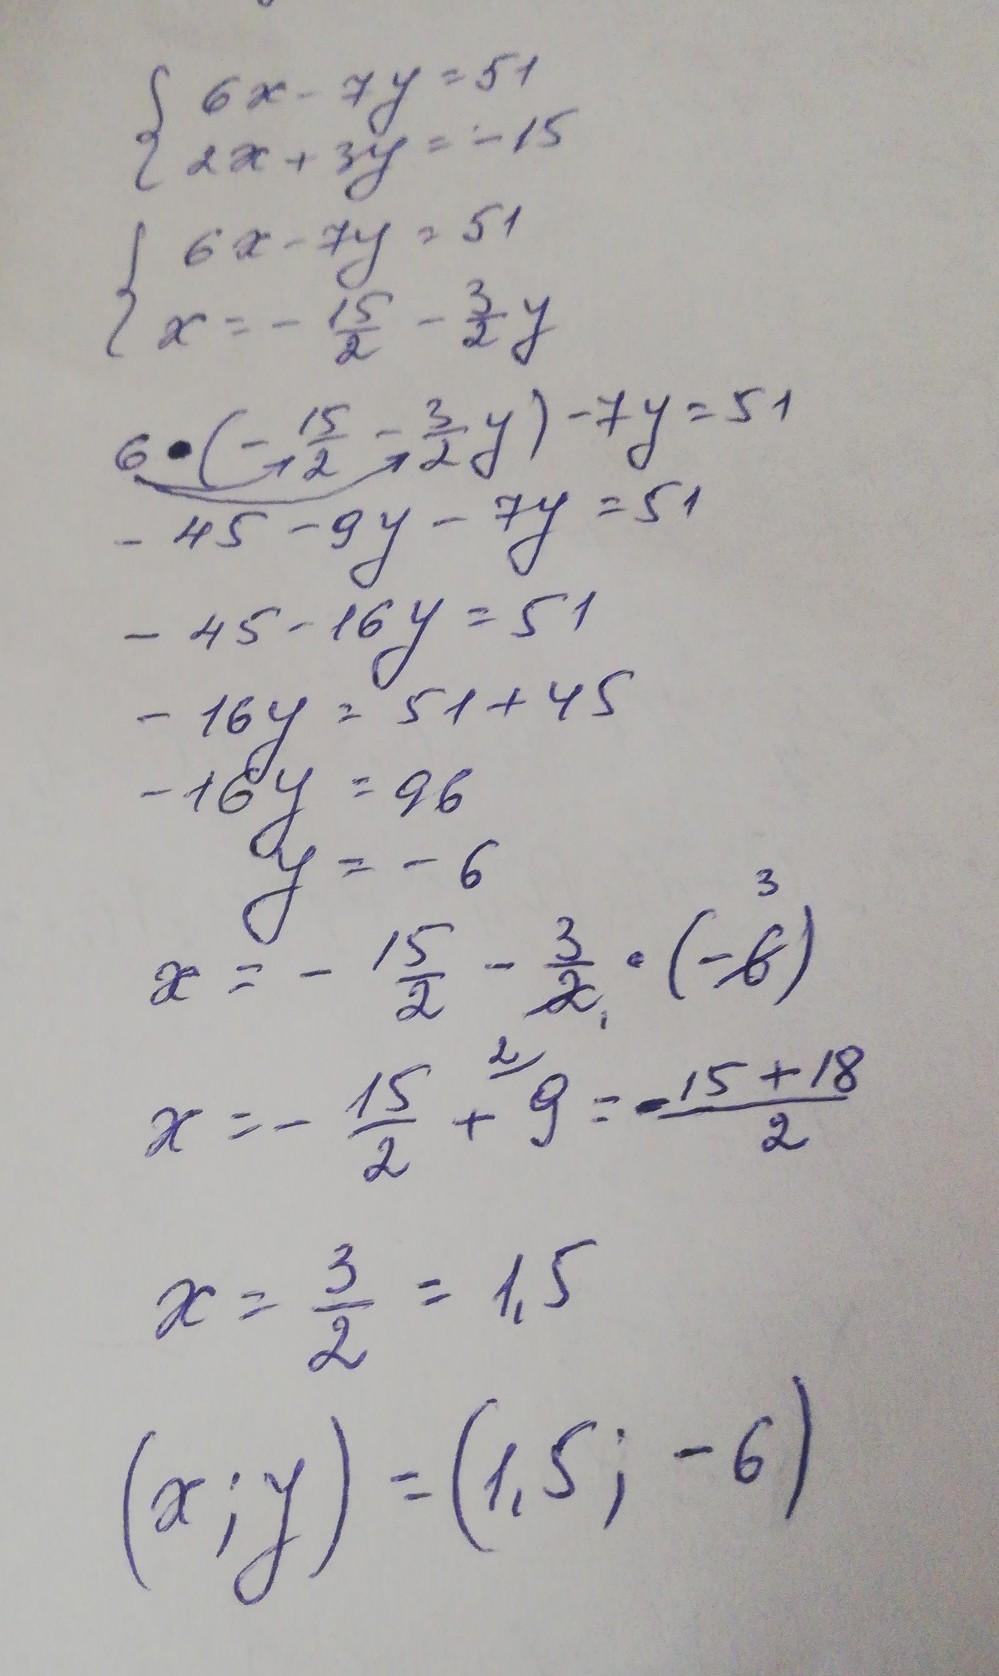 { 6x - 7y = 51
2x + 3y = -15
{ 6x - 7y = 51
x = - 15/2 - 3/2 y
6 • (- 15/2 - 3/2 y) - 7y = 51
- 45 - 9y - 7y = 51
- 45 - 16y = 51
- 16y = 51 + 45
- 16y = 96
y = - 6
x = - 15/2 - 3/2 1 • (-6 3)
x = - 15/2 + 2/ 9 = -15 + 18/2
x = 3/2 = 1,5
(x; y) = (1,5; -6)